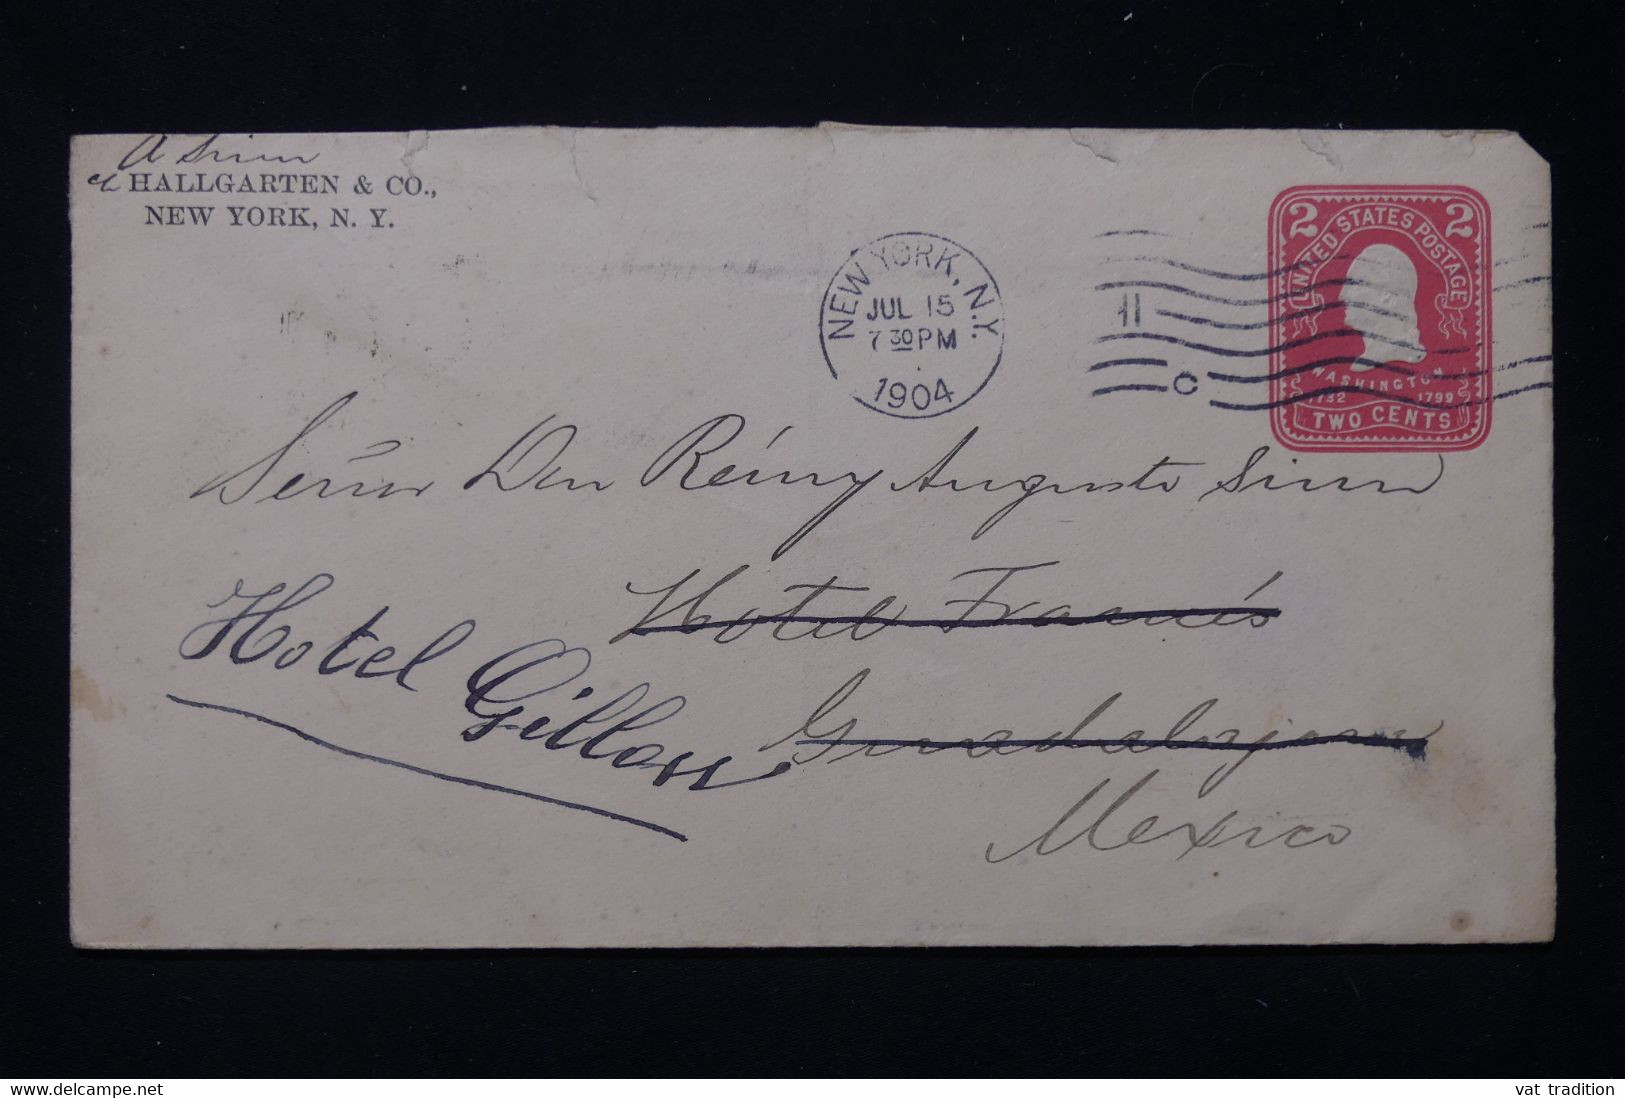 A Sinn
c/o HALLGARTEN & CO.,
NEW YORK, N. Y.
NEW YORK, N.Y.
JUL 15
7 30 PM
1904
C
2 2
UNITED STATES POSTAGE
WASHINGTON
1732 1799
TWO CENTS
Señor Don Rémy Auguste Sinn
Hotel Francés
Hotel Gillow
Guadalajara
Mexico
vat tradition